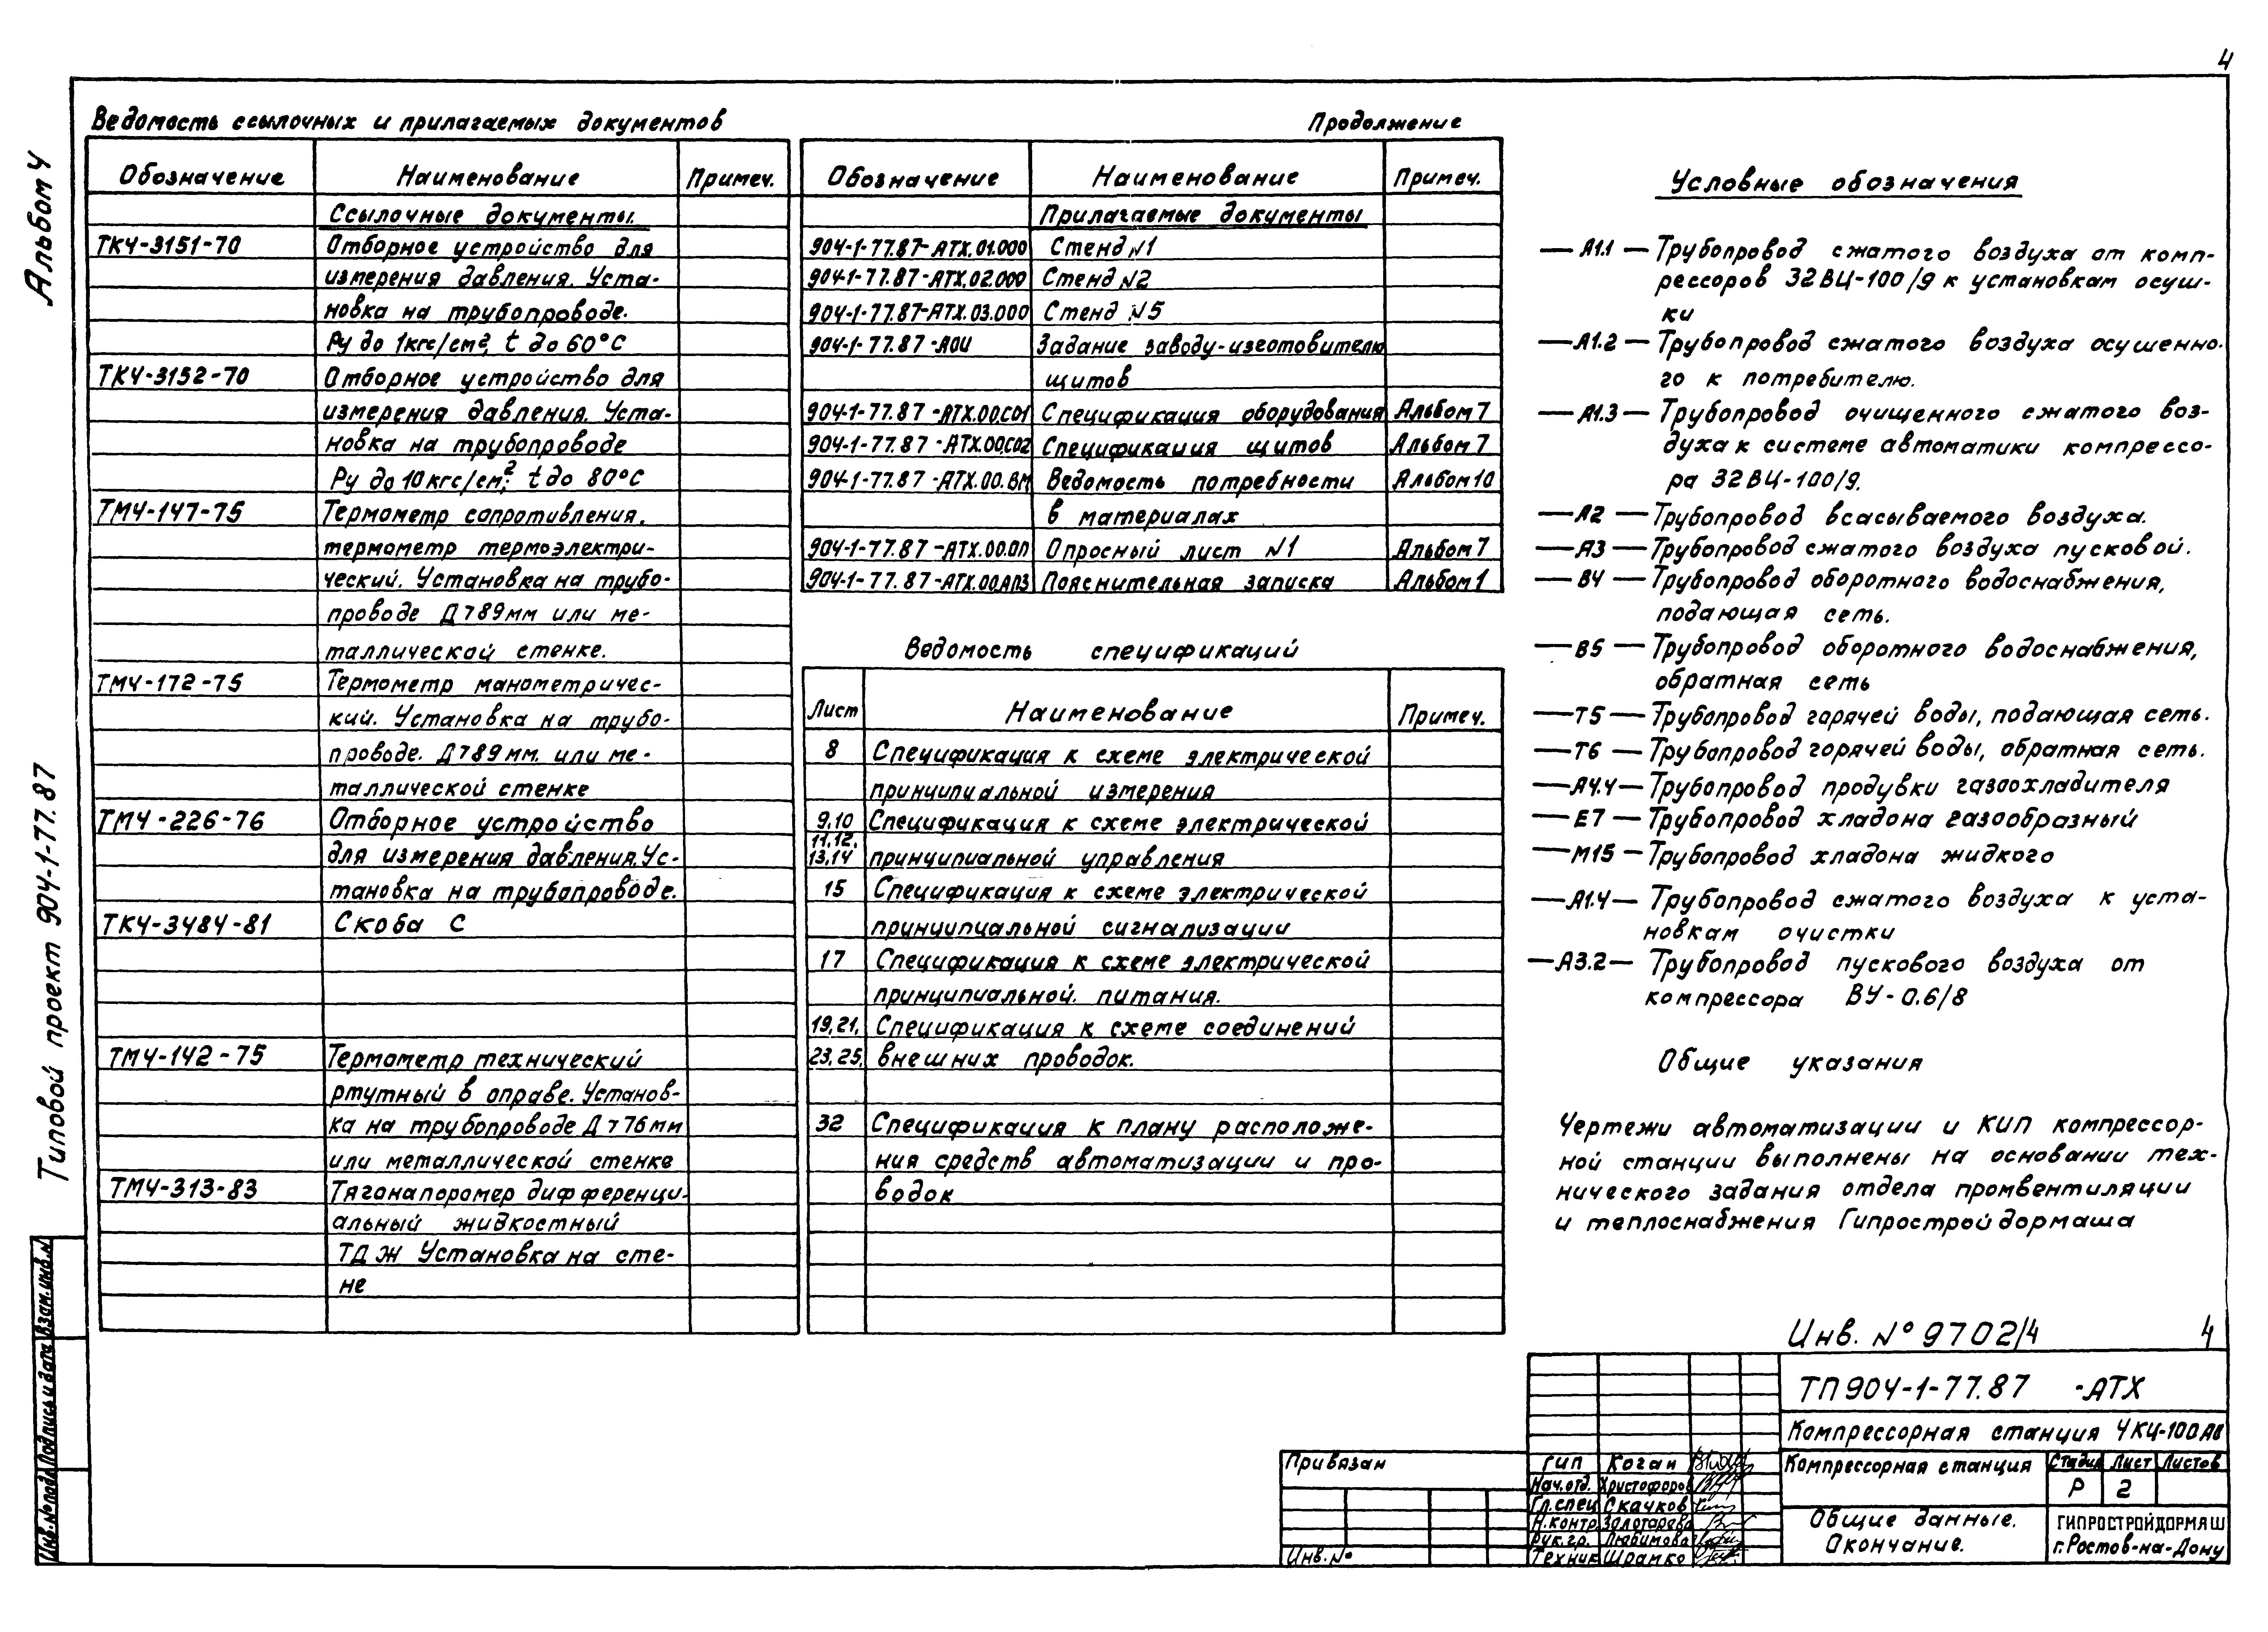 4
Альбом 4
Типовой проект 904-1-77.87
Ведомость ссылочных и прилагаемых документов
Обозначение Наименование Примеч.
Ссылочные документы.
ТК4-3151-70 Отборное устройство для
измерения давления. Уста-
новка на трубопроводе.
Ру до 1кгс/см², t до 60°С
ТК4-3152-70 Отборное устройство для
измерения давления. Уста-
новка на трубопроводе
Ру до 10кгс/см², t до 80°С
ТМ4-147-75 Термометр сопротивления,
термометр термоэлектри-
ческий. Установка на трубо-
проводе Д>89мм или ме-
таллической стенке.
ТМ4-172-75 Термометр манометричес-
кий. Установка на трубо-
проводе. Д>89мм. или ме-
таллической стенке
ТМ4-226-76 Отборное устройство
для измерения давления. Ус-
тановка на трубопроводе.
ТК4-3484-81 Скоба С
ТМ4-142-75 Термометр технический
ртутный в оправе. Установ-
ка на трубопроводе Д>76мм
или металлической стенке
ТМ4-313-83 Тягонапоромер дифференци-
альный жидкостный
ТДЖ Установка на сте-
не
Продолжение
Обозначение Наименование Примеч.
Прилагаемые документы
904-1-77.87-АТХ.01.000 Стенд №1
904-1-77.87-АТХ.02.000 Стенд №2
904-1-77.87-АТХ.03.000 Стенд №5
904-1-77.87-АОИ Задание заводу-изготовителю
щитов
904-1-77.87-АТХ.00.С01 Спецификация оборудования Альбом 7
904-1-77.87-АТХ.00.С02 Спецификация щитов Альбом 7
904-1-77.87-АТХ.00.ВМ Ведомость потребности Альбом 10
в материалах
904-1-77.87-АТХ.00.ОЛ Опросный лист №1 Альбом 7
904-1-77.87-АТХ.00.АПЗ Пояснительная записка Альбом 1
Ведомость спецификаций
Лист Наименование Примеч.
8 Спецификация к схеме электрической
принципиальной измерения
9,10 Спецификация к схеме электрической
11,12,
13,14 принципиальной управления
15 Спецификация к схеме электрической
принципиальной сигнализации
17 Спецификация к схеме электрической
принципиальной. питания.
19,21, Спецификация к схеме соединений
23,25, внешних проводок.
32 Спецификация к плану расположе-
ния средств автоматизации и про-
водок
Условные обозначения
—А1.1— Трубопровод сжатого воздуха от комп-
рессоров 32ВЦ-100/9 к установкам осуш-
ки
—А1.2— Трубопровод сжатого воздуха осушенно-
го к потребителю.
—А1.3— Трубопровод очищенного сжатого воз-
духа к системе автоматики компрессо-
ра 32ВЦ-100/9.
—А2— Трубопровод всасываемого воздуха.
—А3— Трубопровод сжатого воздуха пусковой.
—В4— Трубопровод оборотного водоснабжения,
подающая сеть.
—В5— Трубопровод оборотного водоснабжения,
обратная сеть
—Т5— Трубопровод горячей воды, подающая сеть.
—Т6— Трубопровод горячей воды, обратная сеть.
—А4.4— Трубопровод продувки газоохладителя
—Е7— Трубопровод хладона газообразный
—М15— Трубопровод хладона жидкого
—А1.4— Трубопровод сжатого воздуха к уста-
новкам очистки
—А3.2— Трубопровод пускового воздуха от
компрессора ВУ-0.6/8
Общие указания
Чертежи автоматизации и КИП компрессор-
ной станции выполнены на основании тех-
нического задания отдела промвентиляции
и теплоснабжения Гипростройдормаша
Инв. №9702/4 4
ТП 904-1-77.87 -АТХ
Компрессорная станция 4КЦ-100АВ
Компрессорная станция
Стадия Лист Листов
Р 2
Общие данные.
Окончание.
ГИПРОСТРОЙДОРМАШ
г.Ростов-на-Дону
Привязан
Инв.№
ГИП Коган
Нач.отд. Христофоров
Гл.спец Скачков
Н.контр Золотарева
Рук.гр. Любимова
Техник Шрамко
Взам.инв.№
Подпись и дата
Инв.№подл.